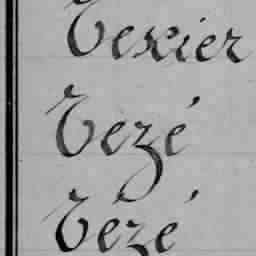 Texier
Tezé
Tézé